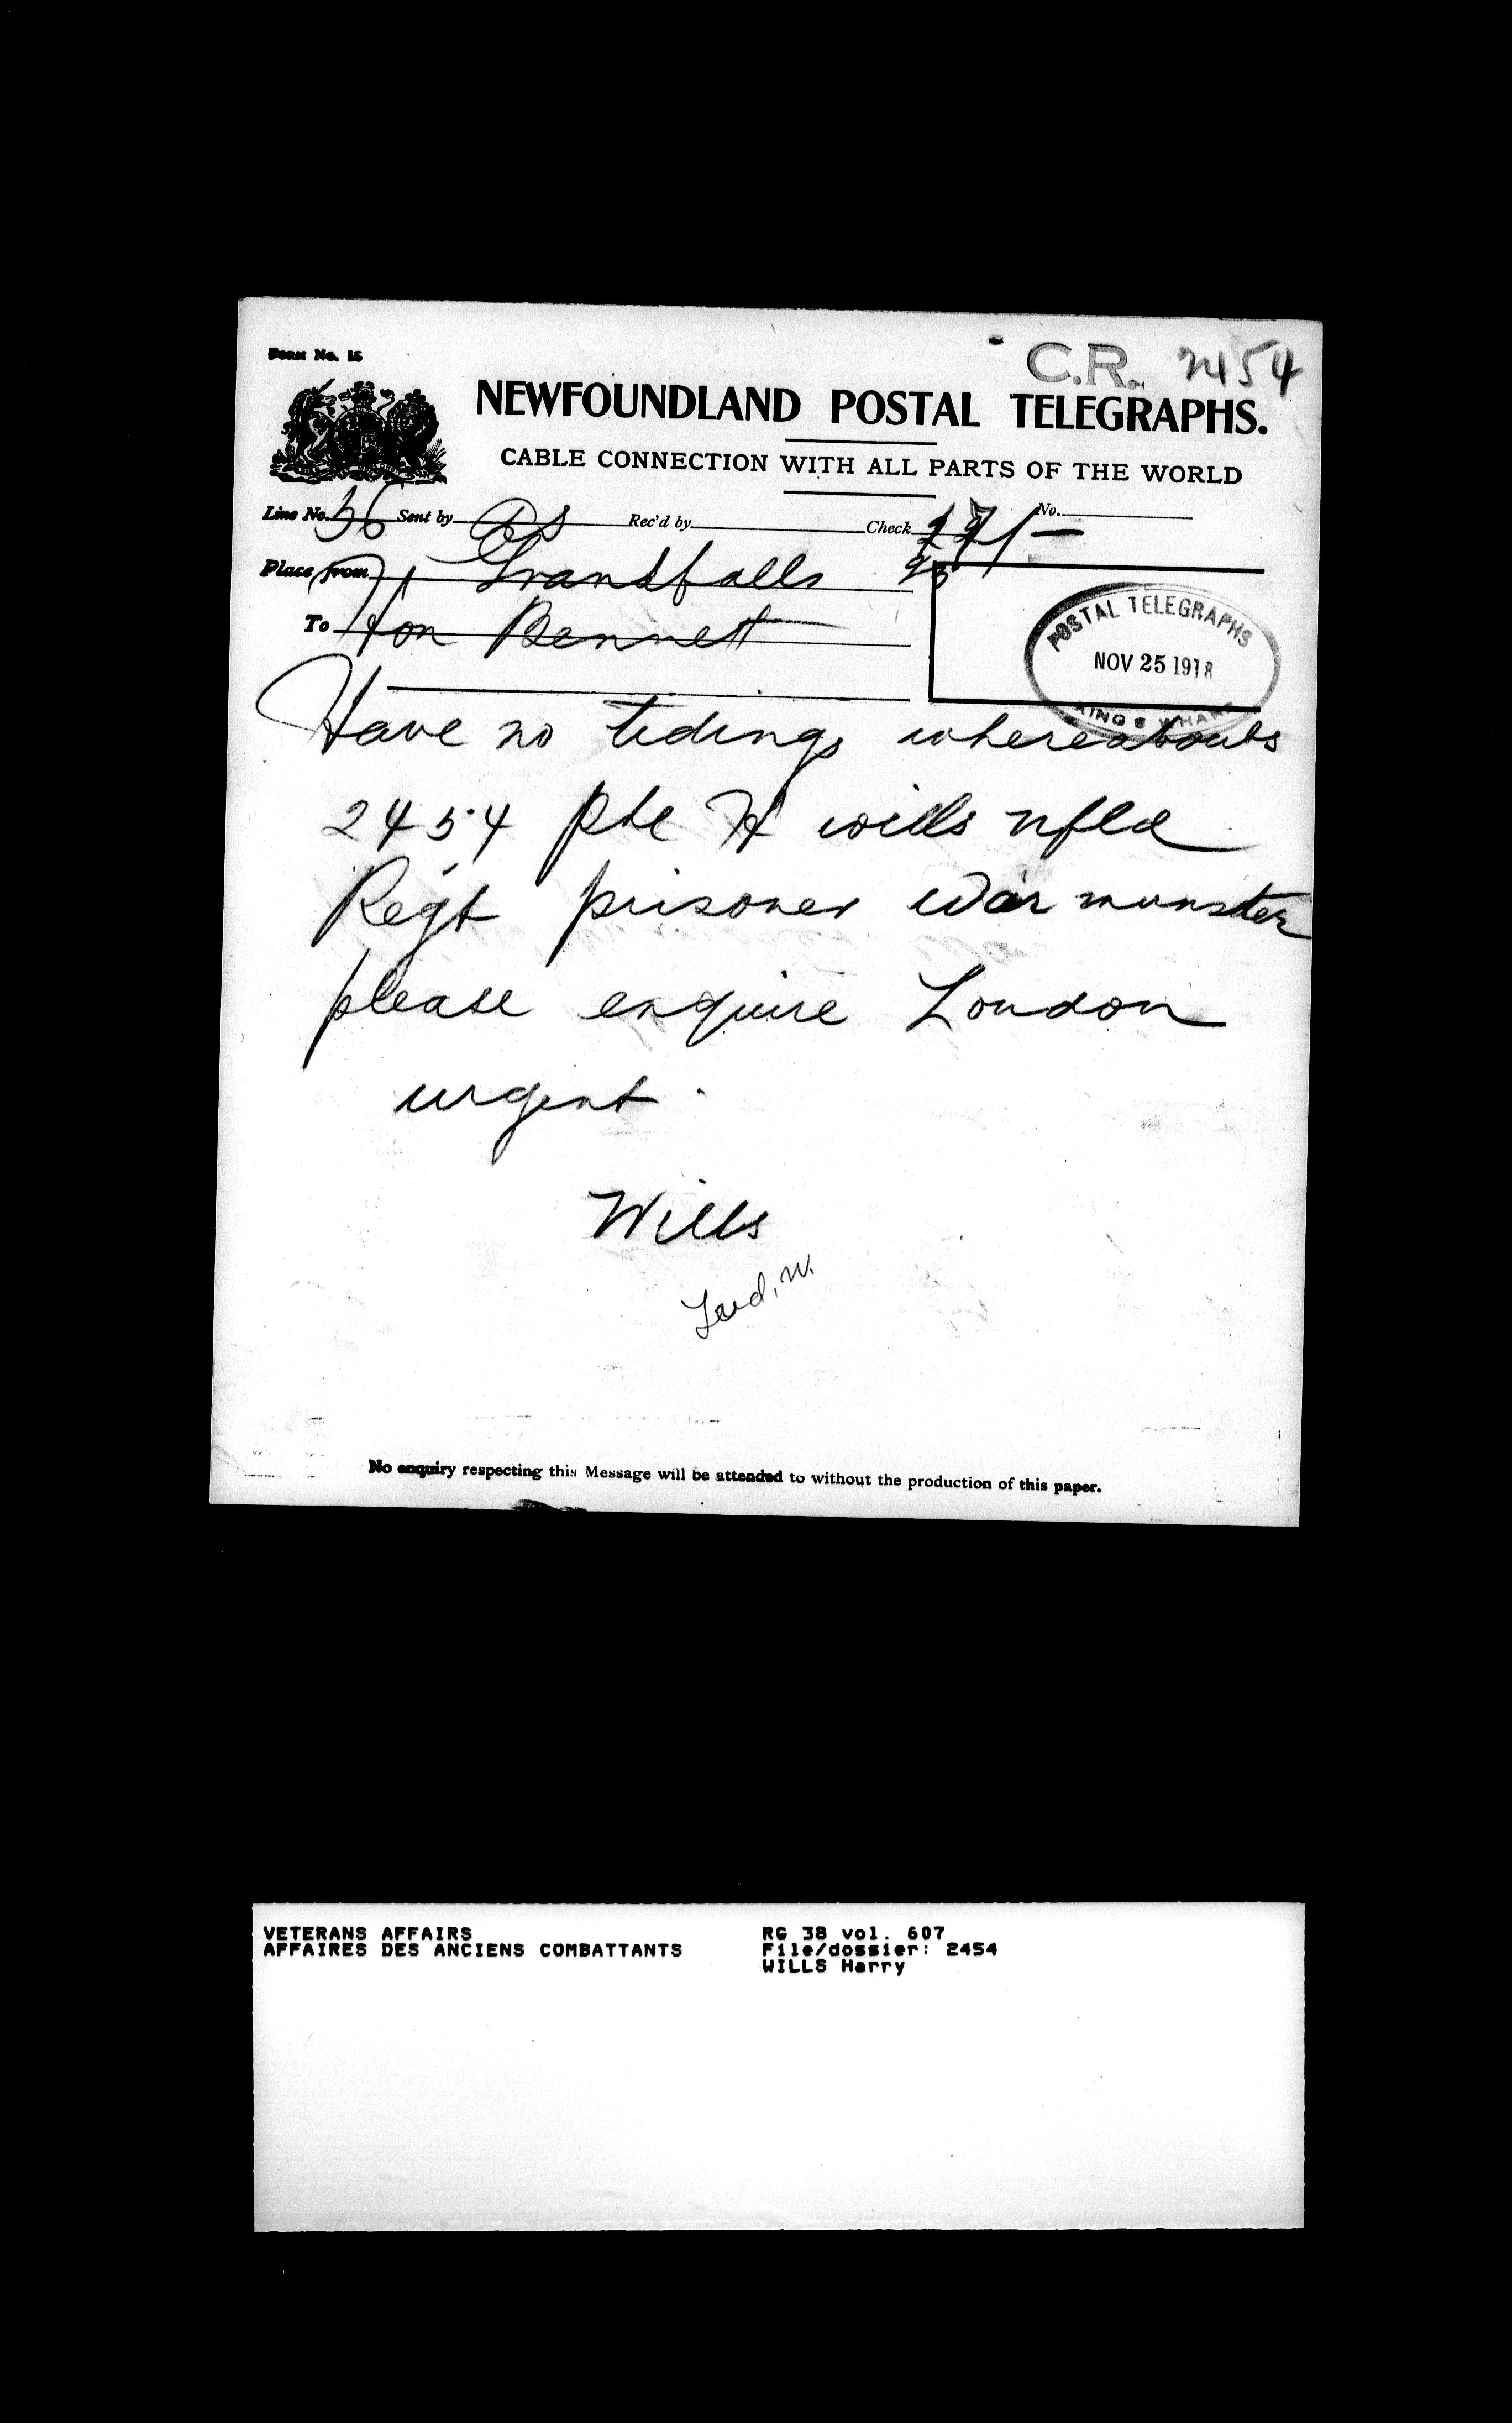 Form No. 15
C.R. 2454
NEWFOUNDLAND POSTAL TELEGRAPHS.
CABLE CONNECTION WITH ALL PARTS OF THE WORLD
Line No. 36 Sent by Rec'd by Check No.
Place from Grandfalls
To Hon Bennett
POSTAL TELEGRAPHS
NOV 25 1918
KING'S WHARF
Have no tidings whereabouts
2454 Pte H wills nfld
Regt prisoner War munster
please enquire London
urgent
Wills
No enquiry respecting this Message will be attended to without the production of this paper.
VETERANS AFFAIRS RG 38 vol. 607
AFFAIRES DES ANCIENS COMBATTANTS File/dossier: 2454
WILLS Harry